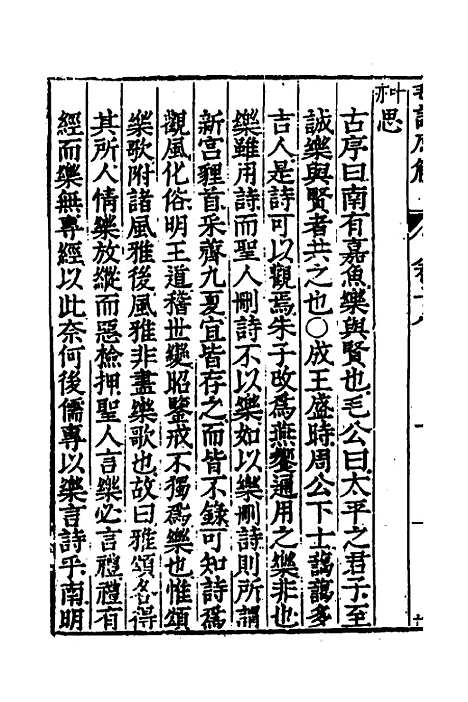 毛詩原解　卷十八
思　叶亦
古序曰南有嘉魚樂與賢也毛公曰太平之君子至
誠樂與賢者共之也○成王盛時周公下士藹藹多
吉人是詩可以觀焉朱子攺爲燕饗通用之樂非也
樂雖用詩而聖人刪詩不以樂如以樂刪詩則所謂
新宫貍首采薺九夏宜皆存之而皆不錄可知詩爲
觀風化俗明王道稽世變昭鑒戒不獨爲樂也惟頌
樂歌附諸風雅後風雅非盡樂歌也故曰雅頌各得
其所人情樂放縱而惡檢押聖人言樂必言禮禮有
經而樂無專經以此奈何後儒專以樂言詩乎南明